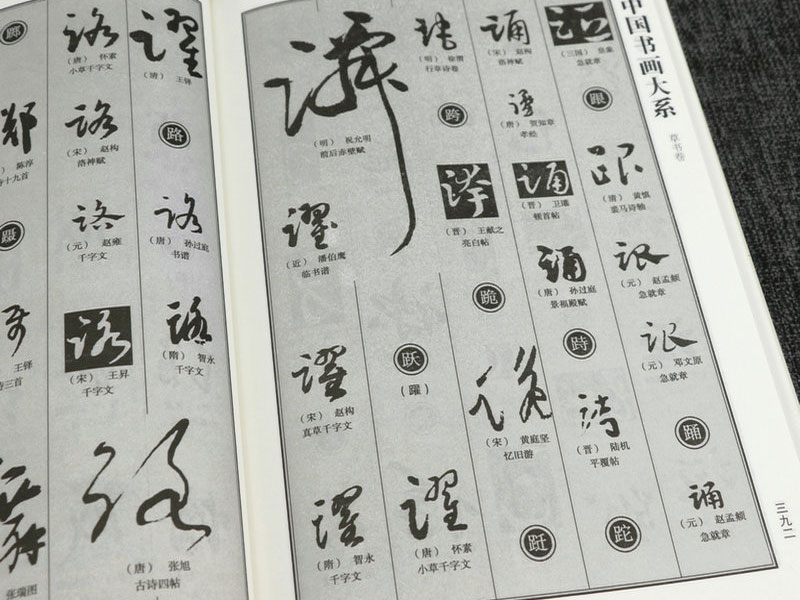 中国书画大系
草书卷
三九二
（三国） 皇象
急就章
跟
（清） 黄慎
裘马诗轴
（元） 赵孟頫
急就章
（元） 邓文原
急就章
踊
（元） 赵孟頫
急就章
（宋） 赵构
洛神赋
（唐） 贺知章
孝经
（晋） 卫瓘
顿首帖
（唐） 孙过庭
景福殿赋
跱
（晋） 陆机
平覆帖
跎
（明） 徐渭
行草诗卷
跨
（晋） 王献之
亮白帖
跪
（宋） 黄庭坚
忆旧游
（明） 祝允明
前后赤壁赋
跃
（躍）
（唐） 怀素
小草千字文
（近） 潘伯鹰
临书谱
（宋） 赵构
真草千字文
（隋） 智永
千字文
（清） 王铎
路
（唐） 孙过庭
书谱
（隋） 智永
千字文
（唐） 怀素
小草千字文
（宋） 赵构
洛神赋
（元） 赵雍
千字文
（宋） 王昇
千字文
（唐） 张旭
古诗四帖
陈淳
诗十九首
蹑
王铎
诗三首
张瑞图